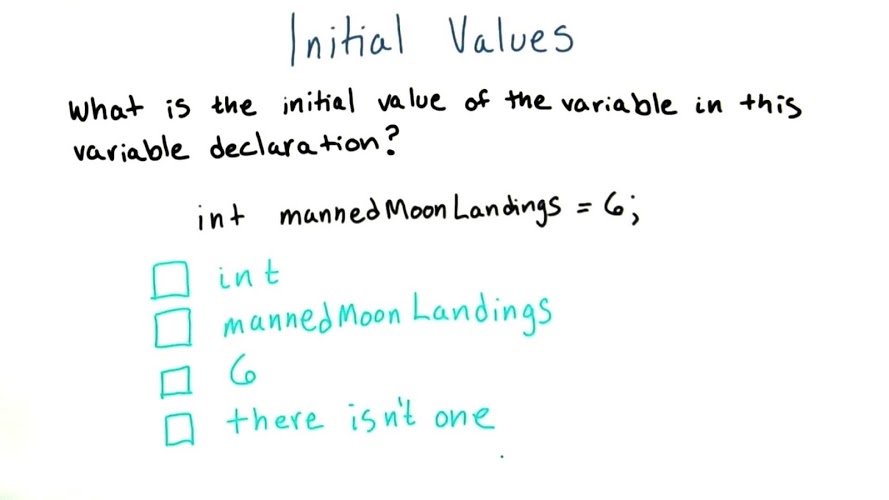 Initial Values
What is the initial value of the variable in this
variable declaration?
int mannedMoonLandings = 6;
int
mannedMoonLandings
6
there isn't one